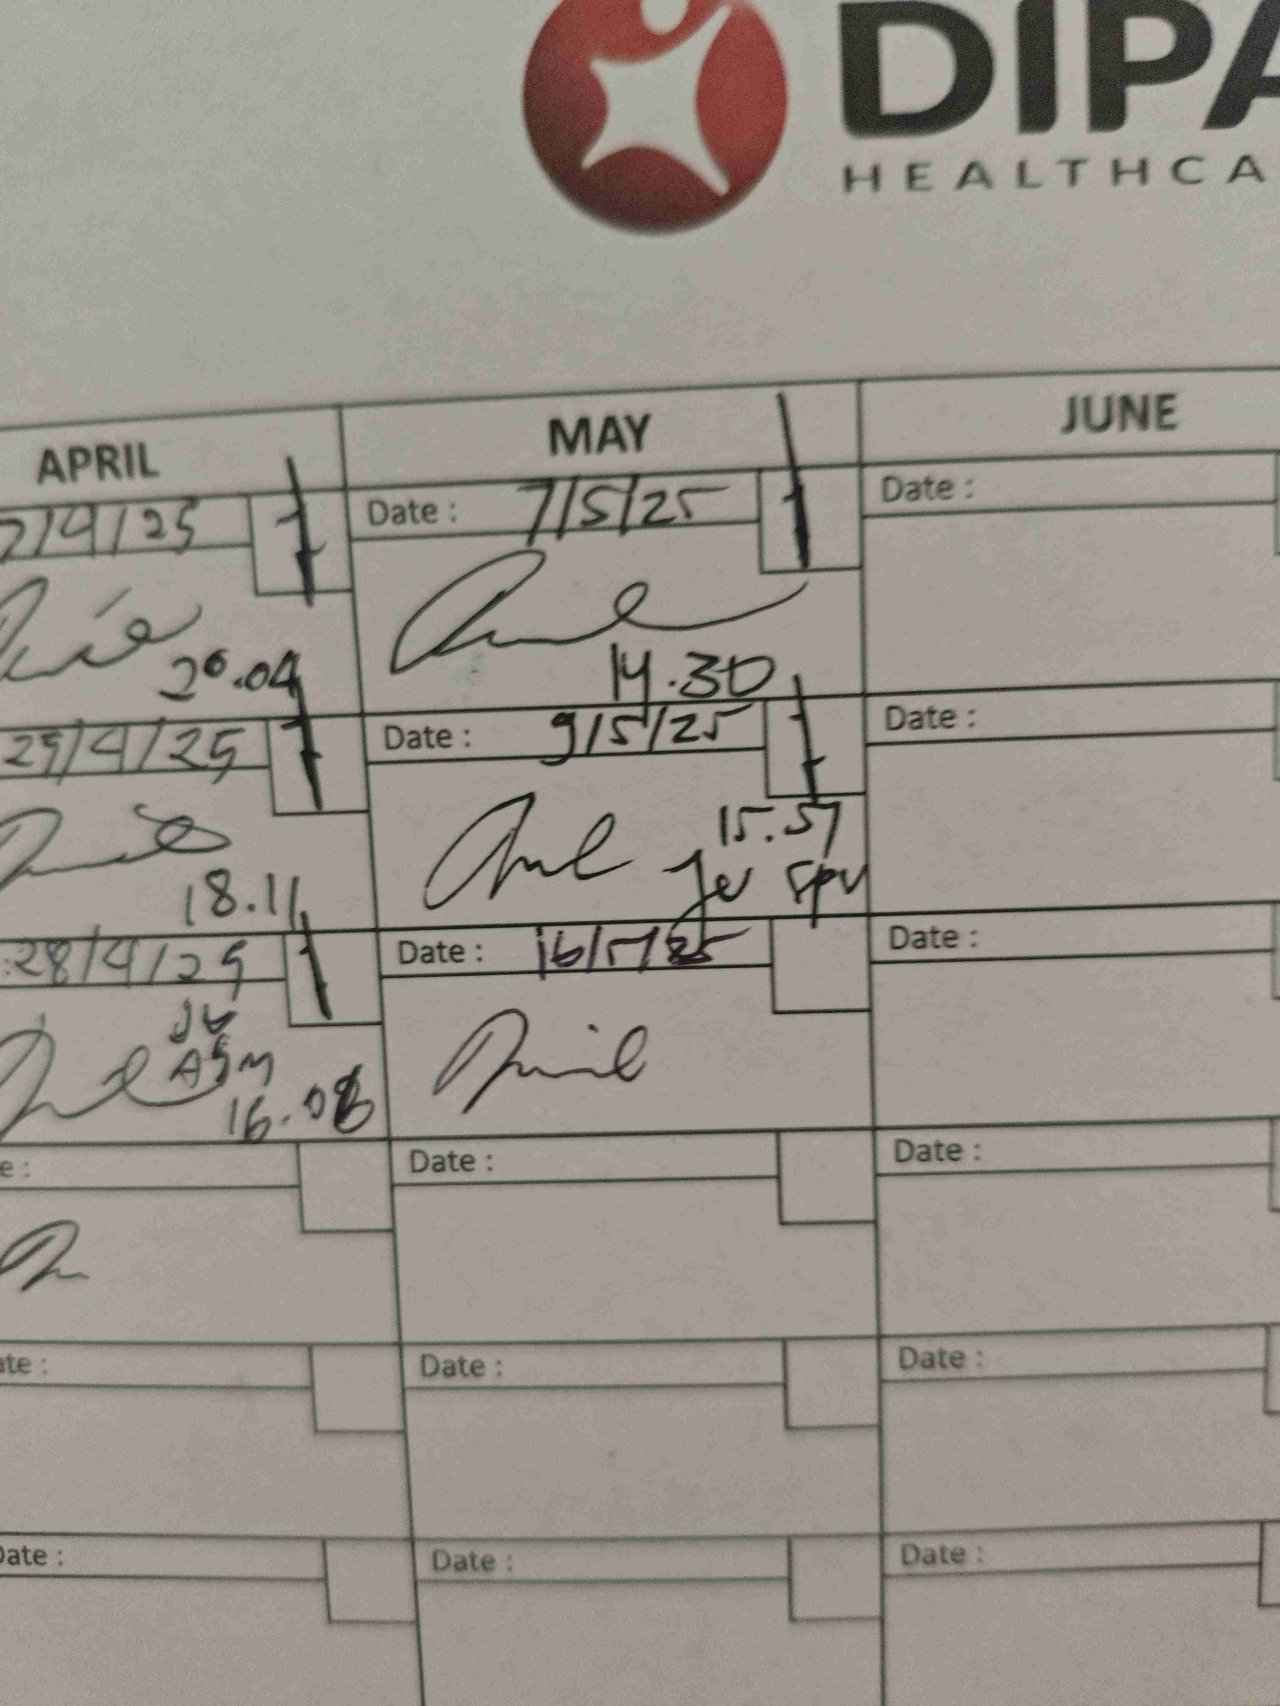 DIPA
HEALTHCA
APRIL
MAY
JUNE
7/4/25
Date : 7/5/25
Date :
20.04
14.30
25/4/25
Date : 9/5/25
Date :
18.11
15.57
Jv spv
28/4/25
Date : 16/5/25
Date :
JV
ASM
16.08
e :
Date :
Date :
ate :
Date :
Date :
Date :
Date :
Date :